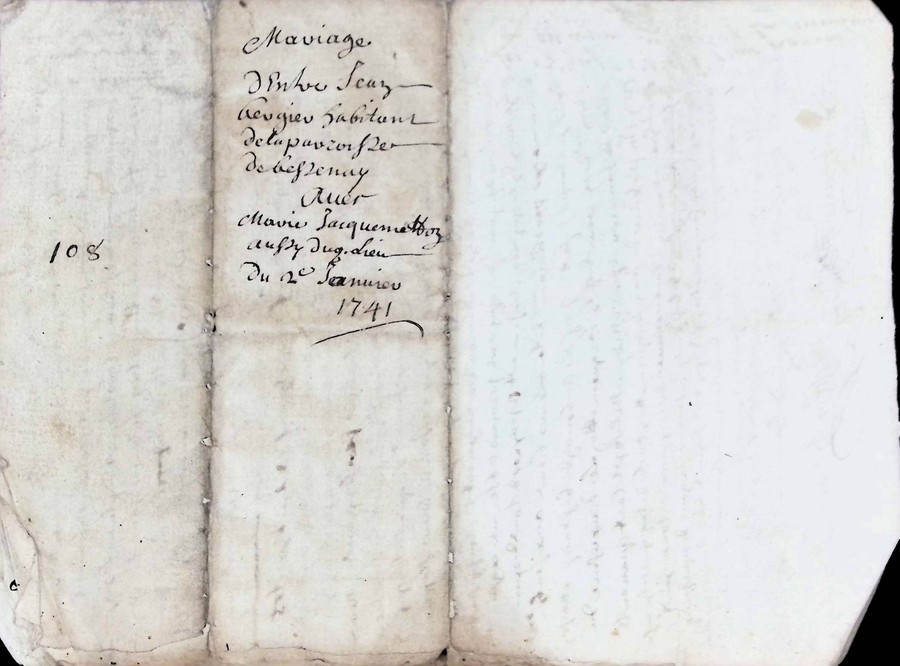 108
Mariage
D'Entre Jean
bergier habitant
de la parroisse
de bessenay
Avec
Marie Jacquemetton
aussy dud. Lieu
Du 2e Janvier
1741